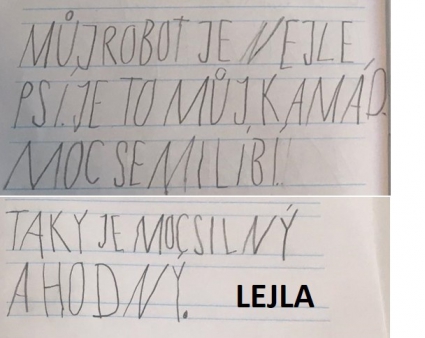 MŮJROBOT JE NEJLE
PSÍ.JE TO MŮJ KÁMÁD.
MOC SE MI LÍBÍ.
TAKY JE MOC SILNÝ
A HODNÝ.
LEJLA